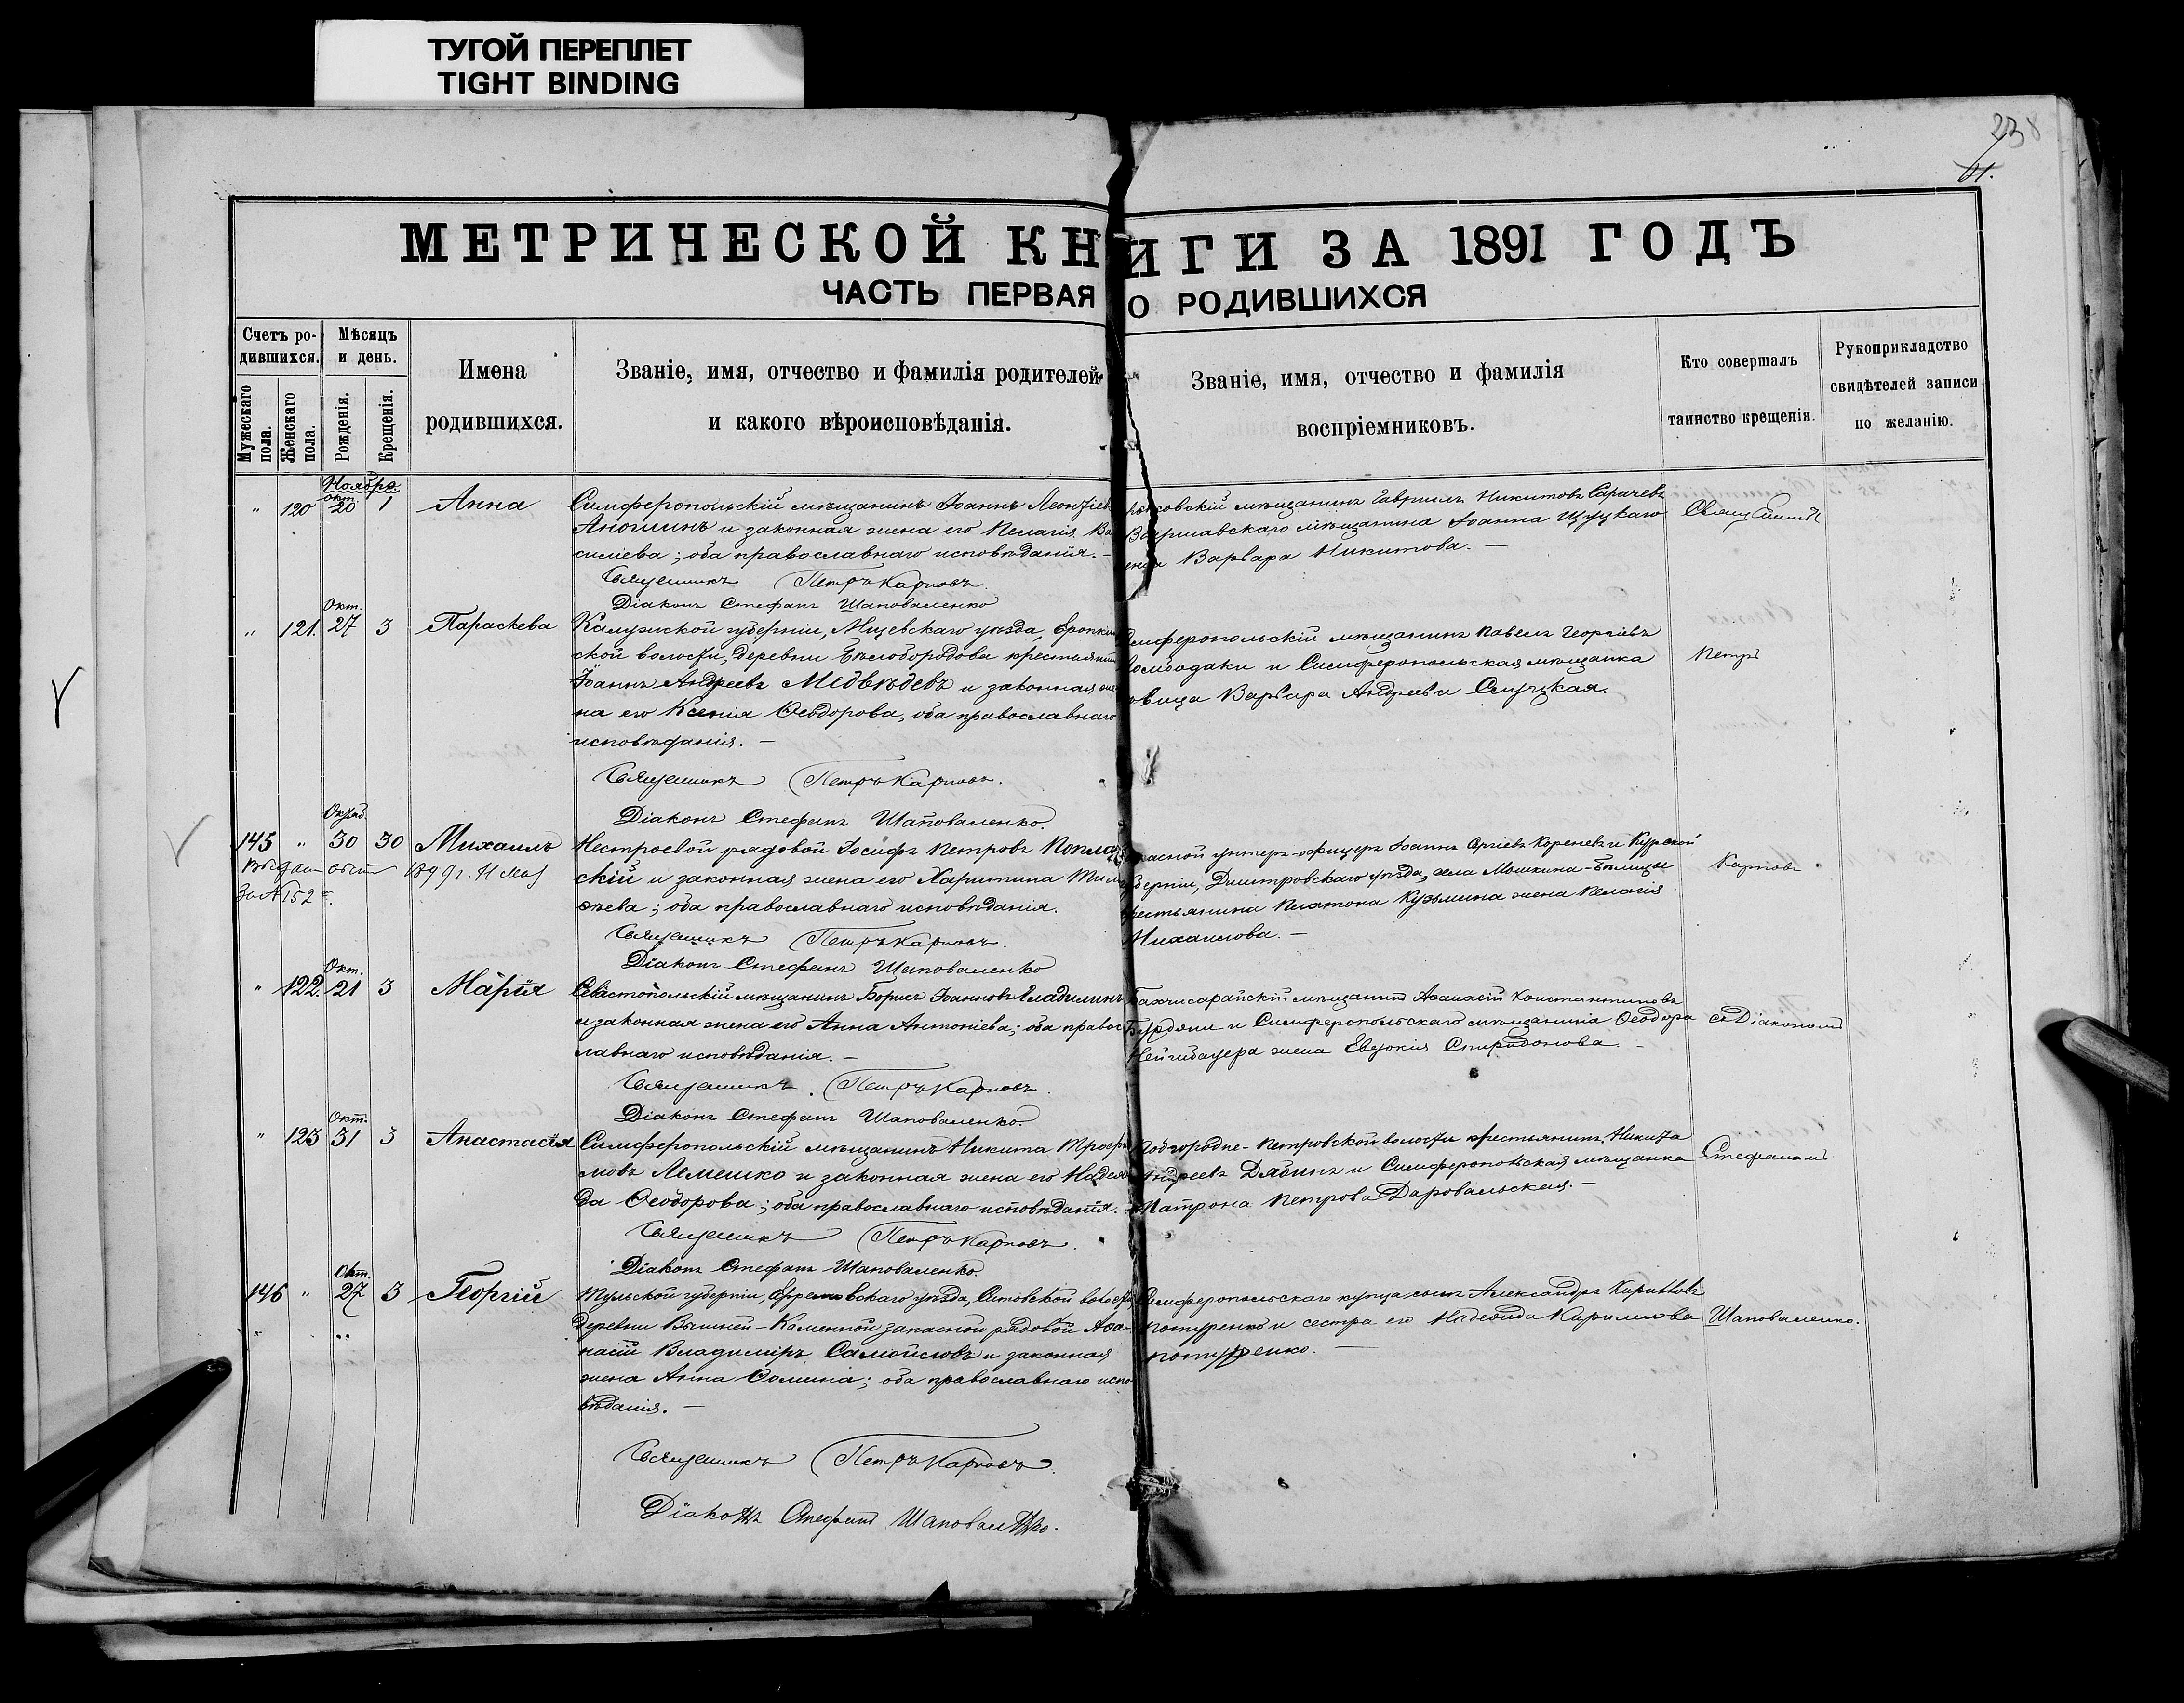 ТУГОЙ ПЕРЕПЛЕТ
TIGHT BINDING
238
61.
МЕТРИЧЕСКОЙ КНИГИ ЗА 1891 ГОДЪ
ЧАСТЬ ПЕРВАЯ О РОДИВШИХСЯ
Счетъ ро-
дившихся.
Мужескаго пола.
Женскаго пола.
Мѣсяцъ
и день.
Рожденія.
Крещенія.
Имена
родившихся.
Званіе, имя, отчество и фамилія родителей
и какого вѣроисповѣданія.
Званіе, имя, отчество и фамилія
воспріемниковъ.
Кто совершалъ
таинство крещенія.
Рукоприкладство
свидѣтелей записи
по желанію.
Ноября
" 120 окт. 20 1 Анна
Симферопольскій мѣщанинъ Іоаннъ
Аношинъ и законная жена его Пелагія Ва
силіева; оба православнаго исповѣданія. —
Священникъ Петръ Карповъ.
Діаконъ Стефанъ Шаповаленко
мѣщанинъ Гавріилъ Никитовъ Сарачевъ
Варшавскаго мѣщанина Іоанна Щуцкаго
жена Варвара Никитова. —
" 121. Окт. 27 3 Параскева
Калужской губерніи, Мщевскаго уѣзда,
ской волости, деревни Бѣлобородова крестьянинъ
Іоаннъ Андреевъ Медвѣдевъ и законная же
на его Ксенія Ѳеодорова, оба православнаго
исповѣданія. —
Священникъ Петръ Карповъ.
Діаконъ Стефанъ Шаповаленко.
Симферопольскій мѣщанинъ Павелъ Георгіевъ
и Симферопольская мѣщанка
вдовица Варвара Андреева Слуцкая.
Петръ
145 " Октяб. 30 30 Михаилъ
За №152
Нестроевой рядовой Іосифъ Петровъ Поплав
скій и законная жена его Харитина Тимо
ѳеева; оба православнаго исповѣданія.
Священникъ Петръ Карповъ.
Діаконъ Стефанъ Шаповаленко
запасной унтеръ-офицеръ Іоаннъ Кореневъ и Курской
губерніи, Дмитровскаго уѣзда, села Мошкина-
крестьянина Платона Кузьмина жена Пелагія
Михаилова. —
Карповъ
" 122. Окт. 21 3 Марія
Севастопольскій мѣщанинъ Борисъ Іоанновъ Гладилинъ
и законная жена его Анна Антоніева; оба правос
лавнаго исповѣданія. —
Священникъ Петръ Карповъ.
Діаконъ Стефанъ Шаповаленко.
Бахчисарайскій мѣщанинъ Аѳанасій Константиновъ
и Симферопольскаго мѣщанина Ѳеодора
жена Евдокія Спиридонова. —
съ Діакономъ
" 123 Окт. 31 3 Анастасія
Симферопольскій мѣщанинъ Никита Трофи
мовъ Лемешко и законная жена его Надеж
да Ѳеодорова; оба православнаго исповѣданія.
Священникъ Петръ Карповъ.
Діаконъ Стефанъ Шаповаленко.
Подгородне-Петровской волости крестьянинъ Никита
Андреевъ Дябинъ и Симферопольская мѣщанка
Матрона Петрова Даровальская. —
Стефаномъ
146 " Окт. 27 3 Георгій
Тульской губерніи, Ефремовскаго уѣзда, Ситовской волости
деревни Вышней-Каменной запасной рядовой Аѳа-
насій Владиміръ Самойловъ и законная
жена Анна Ѳомина; оба православнаго испо
вѣданія. —
Священникъ Петръ Карповъ.
Діаконъ Стефанъ Шаповаленко.
Симферопольскаго купца сынъ Александръ Кирилловъ
Потуренко и сестра его Надежда Кириллова
Потуренко. —
Шаповаленко.